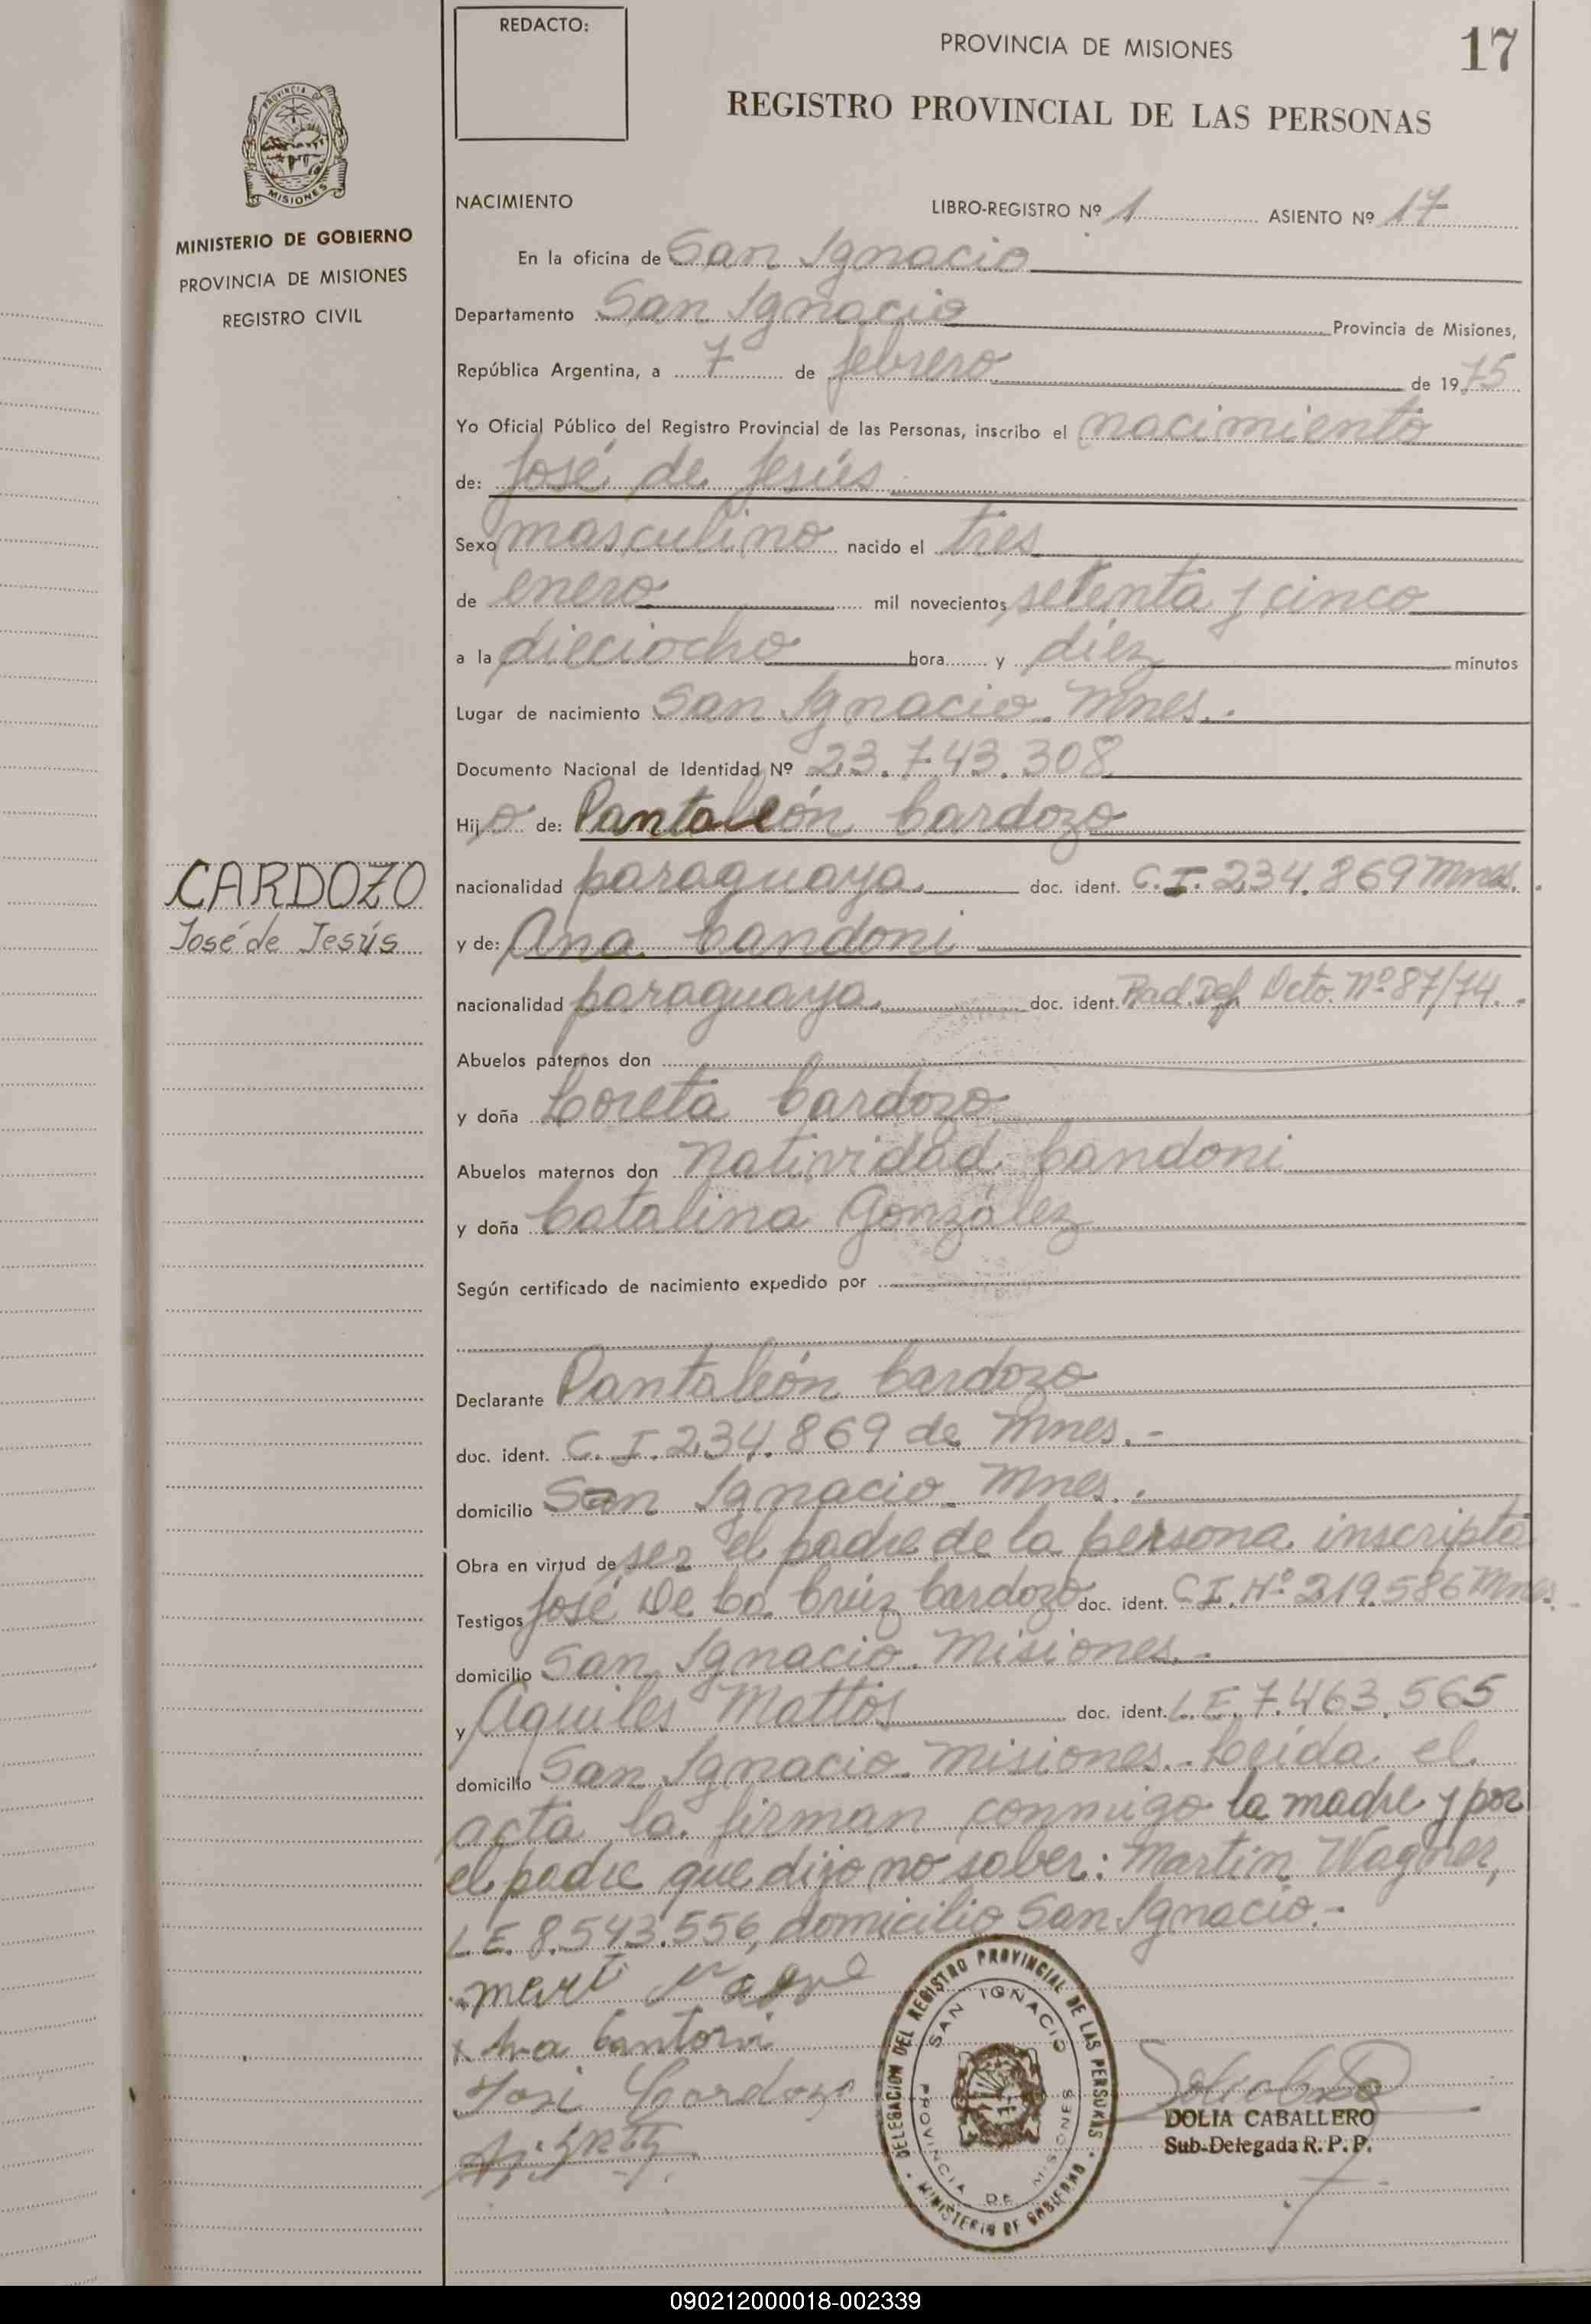 REDACTO:
PROVINCIA DE MISIONES
17
REGISTRO PROVINCIAL DE LAS PERSONAS
PROVINCIA DE
MISIONES
MINISTERIO DE GOBIERNO
PROVINCIA DE MISIONES
REGISTRO CIVIL
CARDOZO
José de Jesús
NACIMIENTO LIBRO-REGISTRO Nº 1 ASIENTO Nº 17
En la oficina de San Ignacio
Departamento San Ignacio Provincia de Misiones,
República Argentina, a 7 de febrero de 1975
Yo Oficial Público del Registro Provincial de las Personas, inscribo el nacimiento
de: José de Jesús
Sexo masculino nacido el tres
de enero mil novecientos setenta y cinco
a la dieciocho hora y diez minutos
Lugar de nacimiento San Ignacio. Mnes.-
Documento Nacional de Identidad Nº 23.743.308
Hijo de: Pantaleón Cardozo
nacionalidad paraguaya. doc. ident. C.I. 234.869 Mnes.
y de: Ana Candoni
nacionalidad paraguaya. doc. ident. Rad. Def. Dcto. Nº 87/74.-
Abuelos paternos don
y doña Loreta Cardozo
Abuelos maternos don Natividad Candoni
y doña Catalina González
Según certificado de nacimiento expedido por
Declarante Pantaleón Cardozo
doc. ident. C.I. 234.869 de Mnes.-
domicilio San Ignacio. Mnes.
Obra en virtud de ser el padre de la persona inscripta
Testigos José De La Crúz Cardozo doc. ident. C.I. Nº 219.586 Mnes.
domicilio San Ignacio. Misiones.-
y Aquiles Mattos doc. ident. L.E. 7.463.565
domicilio San Ignacio. Misiones.- Leida el
acta la firman conmigo la madre y por
el padre que dijo no saber: Martín Wagner,
L.E. 8.543.556, domicilio San Ignacio.-
Cantori
José Cardozo
DELEGACION DEL REGISTRO PROVINCIAL DE LAS PERSONAS
MINISTERIO DE GOBIERNO
SAN IGNACIO
PROVINCIA DE MISIONES
DOLIA CABALLERO
Sub-Delegada R. P. P.
090212000018-002339